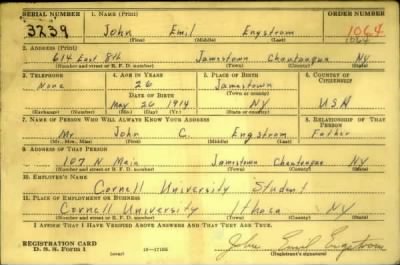 SERIAL NUMBER 1. NAME (Print) ORDER NUMBER
3239 John Emil Engstrom 1064
(First) (Middle) (Last) 1064
2. ADDRESS (Print)
614 East 8th Jamestown Chautauqua NY.
(Number and street or R. F. D. number) (Town) (County) (State)
3. TELEPHONE 4. AGE IN YEARS 5. PLACE OF BIRTH 6. COUNTRY OF CITIZENSHIP
None 26 Jamestown
DATE OF BIRTH (Town or county)
May 26 1914 NY USA
(Exchange) (Number) (Mo.) (Day) (Yr.) (State or country)
7. NAME OF PERSON WHO WILL ALWAYS KNOW YOUR ADDRESS 8. RELATIONSHIP OF THAT PERSON
Mr John C. Engstrom Father
(Mr., Mrs., Miss) (First) (Middle) (Last)
9. ADDRESS OF THAT PERSON
107 N Main Jamestown Chautauqua NY
(Number and street or R. F. D. number) (Town) (County) (State)
10. EMPLOYER'S NAME
Cornell University Student
11. PLACE OF EMPLOYMENT OR BUSINESS
Cornell University Ithaca NY
(Number and street or R. F. D. number) (Town) (County) (State)
I AFFIRM THAT I HAVE VERIFIED ABOVE ANSWERS AND THAT THEY ARE TRUE.
REGISTRATION CARD
D. S. S. Form 1 (over) 16-17105 John Emil Engstrom
(Registrant's signature)